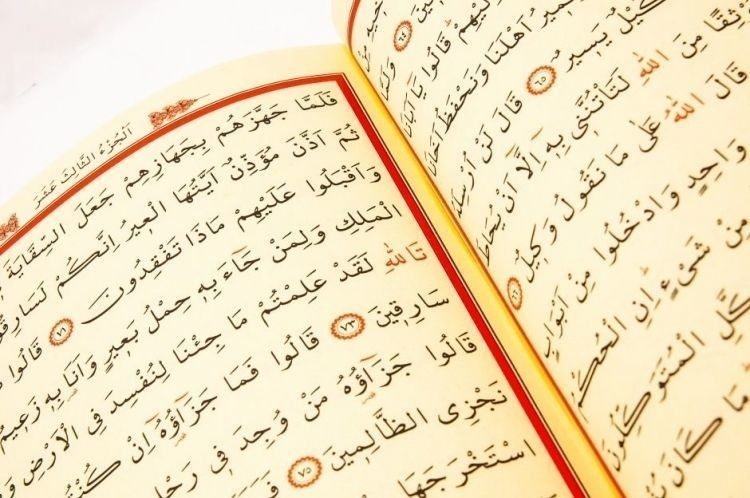 مِنْ
٦٤
اِلَيْهِمْ قَالُوا يَٓا اَبَانَا
اَهْلَنَا وَنَحْفَظُ
كَيْلٌ يَسِيرٌ ٦٥ قَالَ لَنْ اُرْسِلَهُ
مِنَ اللّٰهِ لَتَأْتُنَّنِى بِهِٓ اِلَّٓا اَنْ يُحَاطَ
قَالَ اللّٰهُ عَلٰى مَا نَقُولُ وَكِيلٌ ٦٦
وَاحِدٍ وَادْخُلُوا مِنْ اَبْوَابٍ
مِنْ شَىْءٍ اِنِ الْحُكْمُ
الْمُتَوَكِّلُونَ
مَا كَانَ
اَلْجُزْءُ الثَّالِثَ عَشَرَ
فَلَمَّا جَهَّزَهُمْ بِجَهَازِهِمْ جَعَلَ السِّقَايَةَ
ثُمَّ اَذَّنَ مُؤَذِّنٌ اَيَّتُهَا الْعِيرُ اِنَّكُمْ لَسَارِقُونَ
وَاَقْبَلُوا عَلَيْهِمْ مَاذَا تَفْقِدُونَ ٧١ قَالُوا
الْمَلِكِ وَلِمَنْ جَٓاءَ بِهِ حِمْلُ بَعِيرٍ وَاَنَا۬ بِهِ زَعِيمٌ
تَاللّٰهِ لَقَدْ عَلِمْتُمْ مَا جِئْنَا لِنُفْسِدَ فِى الْاَرْضِ
سَارِقِينَ ٧٣ قَالُوا فَمَا جَزَٓاؤُ۬هُٓ اِنْ كُنْتُمْ
قَالُوا جَزَٓاؤُ۬هُ مَنْ وُجِدَ فِى رَحْلِهِ
نَجْزِى الظَّالِمِينَ ٧٥
اسْتَخْرَجَهَا